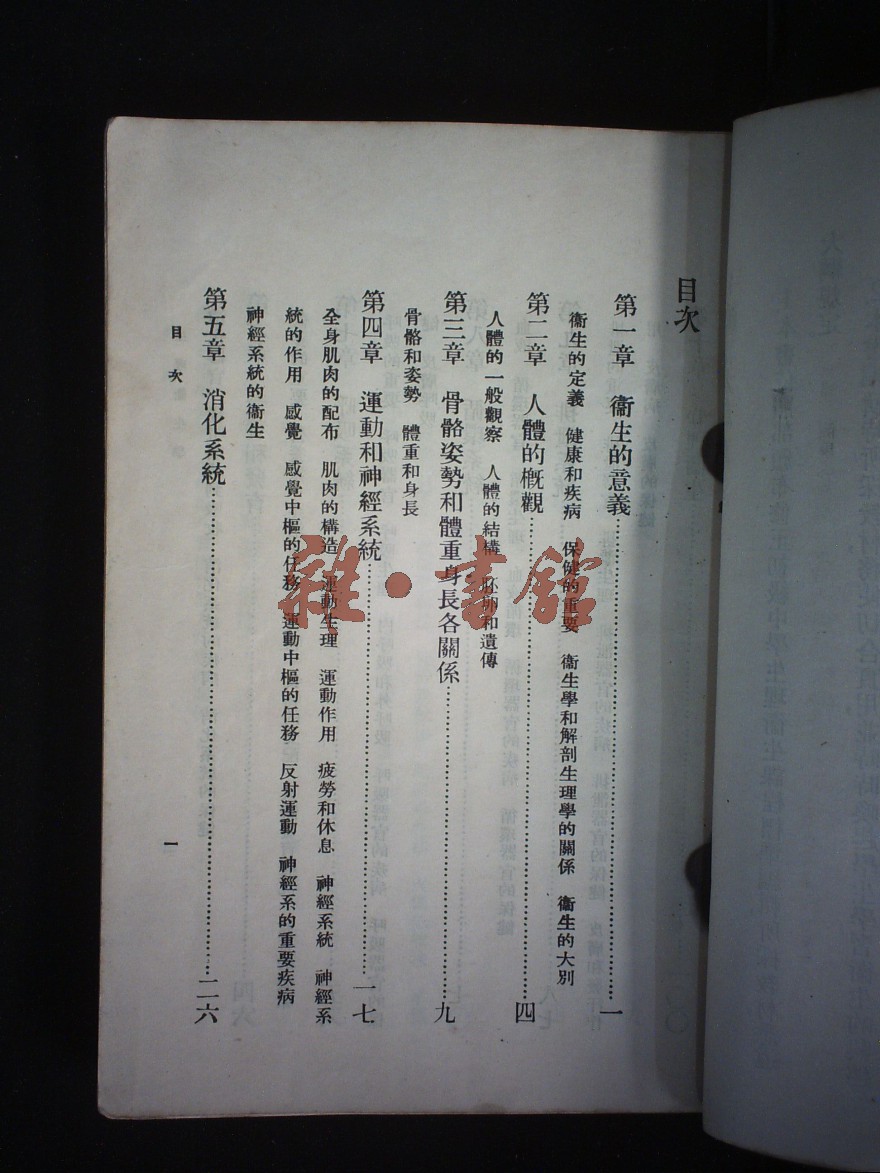 目次
第一章　衞生的意義……一
衞生的定義　健康和疾病　保健的重要　衞生學和解剖生理學的關係　衞生的大別
第二章　人體的槪觀……四
人體的一般觀察　人體的結構　胚卵和遺傳
第三章　骨骼姿勢和體重身長各關係……九
骨骼和姿勢　體重和身長
第四章　運動和神經系統……一七
全身肌肉的配布　肌肉的構造　運動生理　運動作用　疲勞和休息　神經系統　神經系
統的作用　感覺　感覺中樞的任務　運動中樞的任務　反射運動　神經系的重要疾病
神經系統的衞生
第五章　消化系統……二六
目次　一
雜·書館